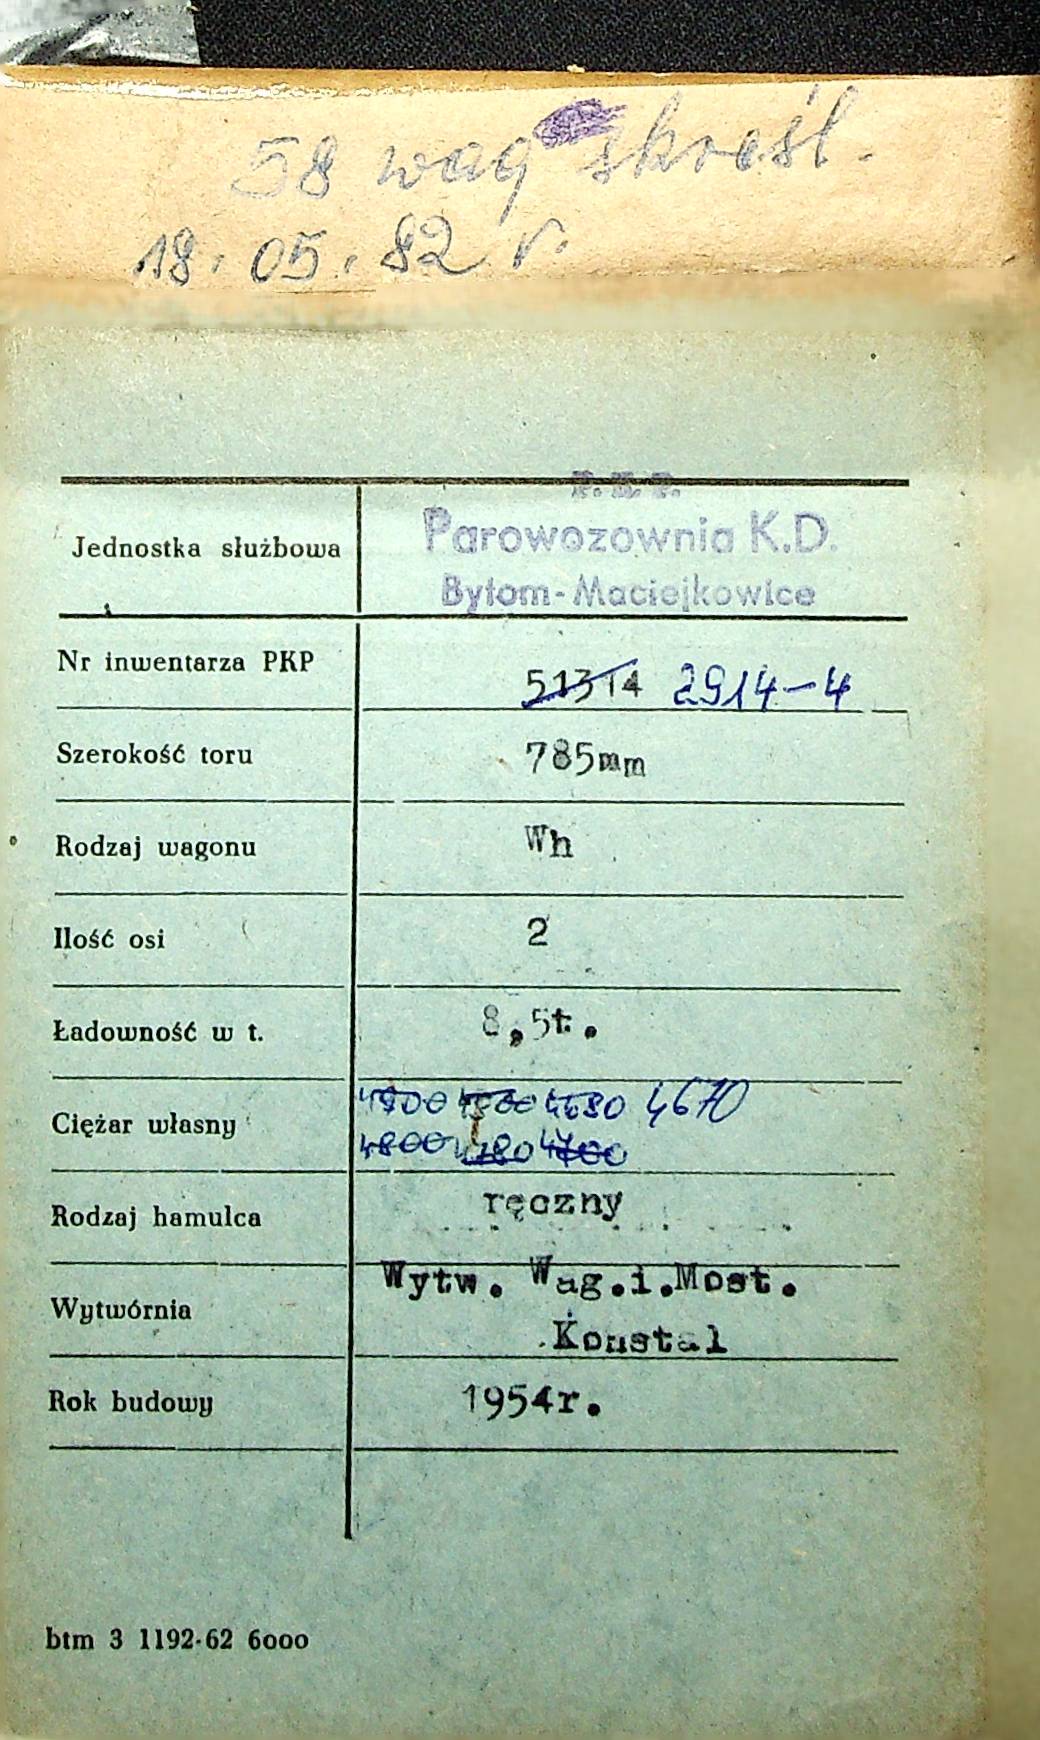 58 wag skreśl.
18.05.82 r.
P. K. P.
Jednostka służbowa Parowozownia K.D.
Bytom-Maciejkowice
Nr inwentarza PKP 51314 2914-4
Szerokość toru 785mm
Rodzaj wagonu Wh
Ilość osi 2
Ładowność w t. 8,5t.
4900 4680 4670
Ciężar własny
4800 4780 4700
Rodzaj hamulca ręczny
Wytw. Wag.i.Most.
Wytwórnia
Konstal
Rok budowy 1954r.
btm 3 1192-62 6000